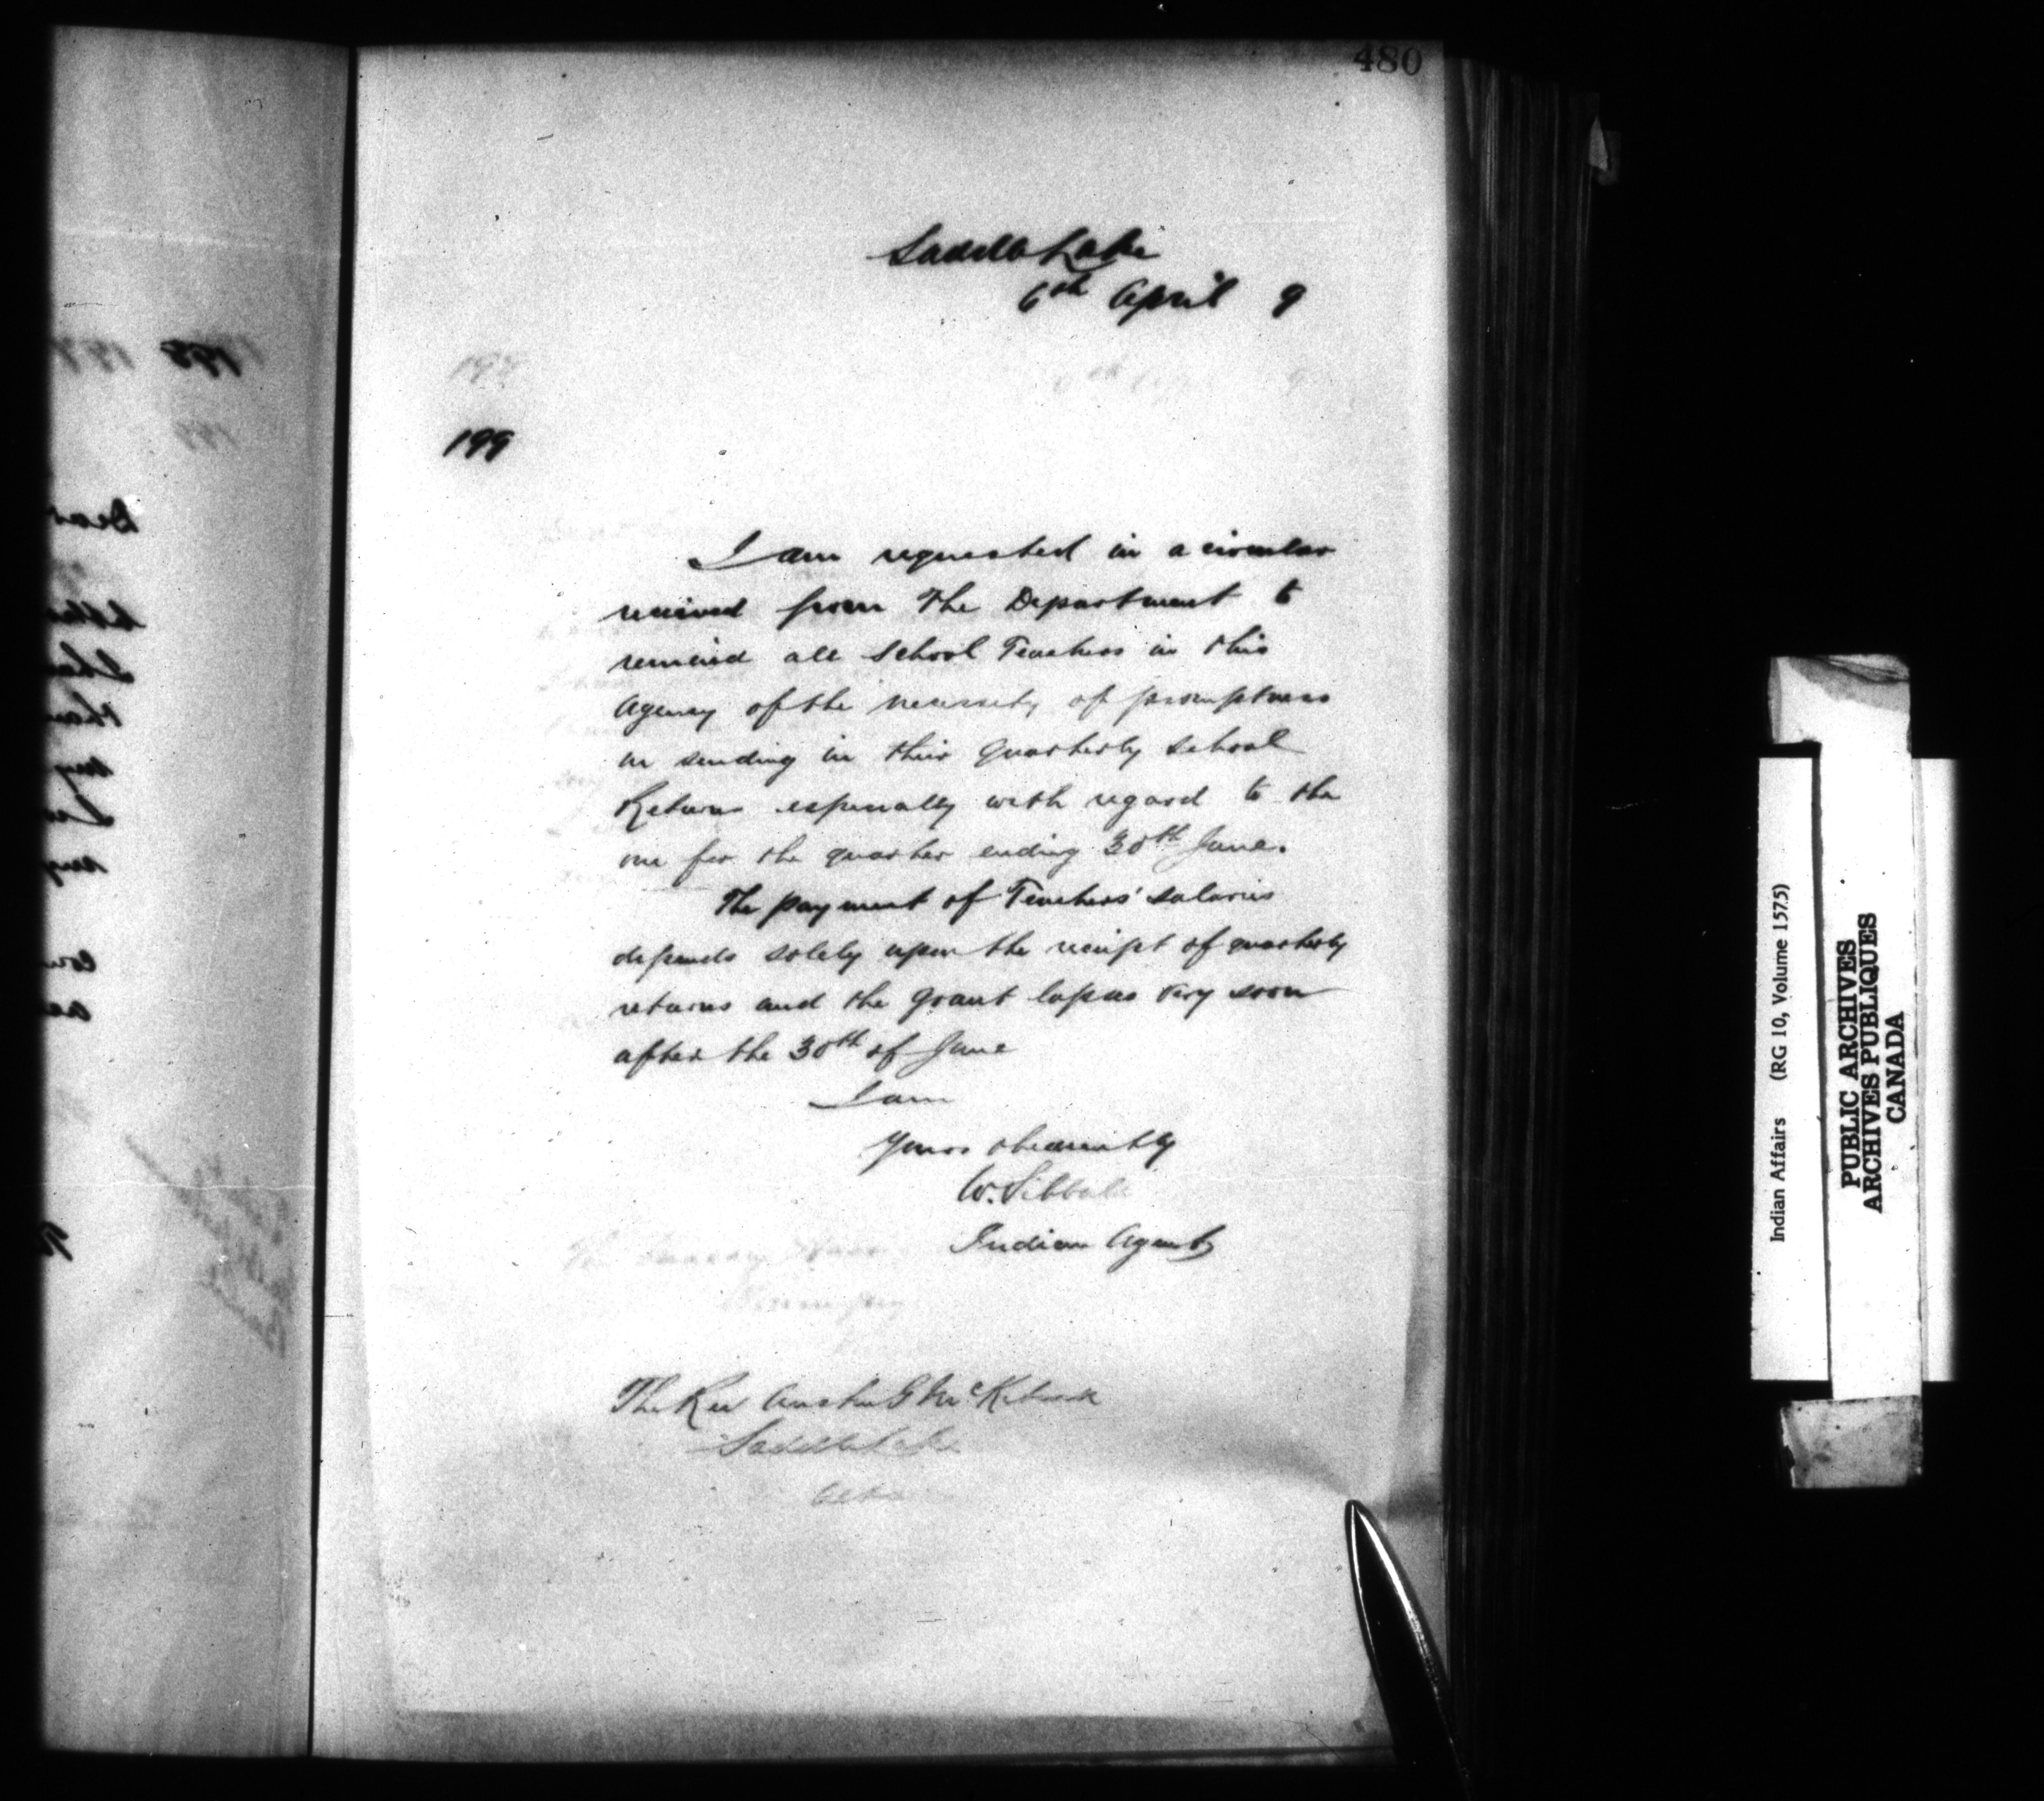 480
Saddle Lake
6th April 9
198
199
I am requested in a circular
received from the Department to
remind all School Teachers in this
Agency of the necessity of promptness
in sending in their Quarterly School
Returns especially with regard to the
one for the quarter ending 30th June.
The payment of Teachers' salaries
depends solely upon the receipt of quarterly
returns and the grant lapses very soon
after the 30th of June
I am
Yours obediently
W. Sibbald
Indian Agent
The Rev Austin G McKitrick
Saddle Lake
Alta
Indian Affairs (RG 10, Volume 1575)
PUBLIC ARCHIVES
ARCHIVES PUBLIQUES
CANADA